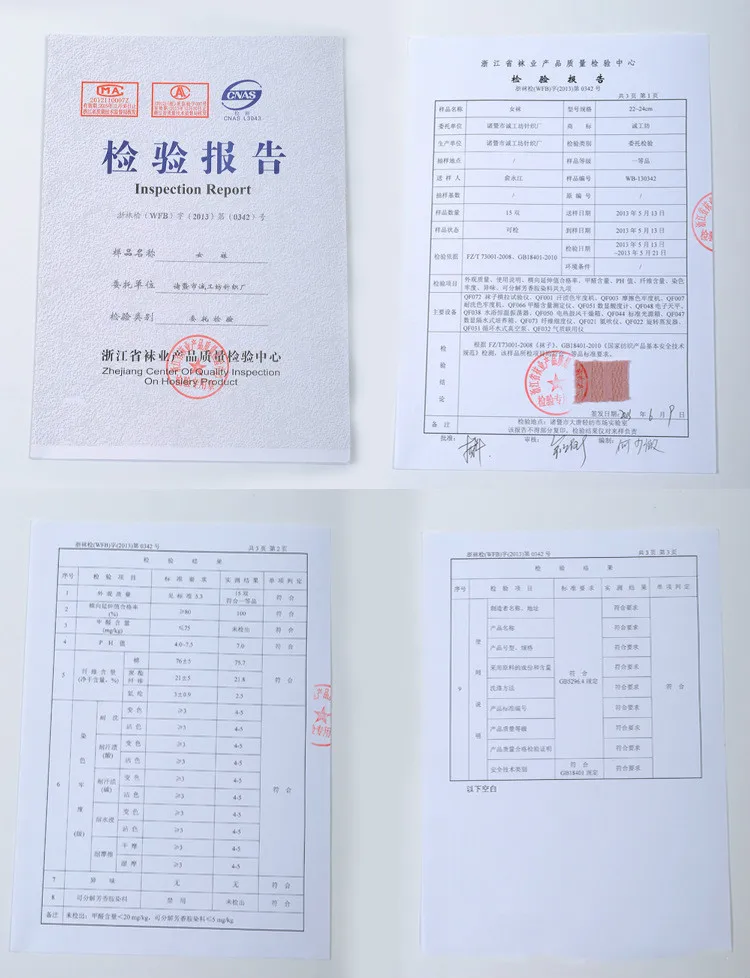 CMA
2012110097Z
CAL
CNAS
检测
CNAS L3943
检验报告
Inspection Report
浙袜检（WFB）字（2013）第（0342）号
样品名称 女袜
委托单位 诸暨市诚工坊针织厂
检验类别 委托检验
浙江省袜业产品质量检验中心
Zhejiang Center Of Quality Inspection
On Hosiery Product
浙江省袜业产品质量检验中心
检验报告
浙袜检(WFB)字(2013)第 0342 号
共 3 页 第 1 页
样品名称 女袜 型号规格 22~24cm
委托单位 诸暨市诚工坊针织厂 商标 诚工坊
生产单位 诸暨市诚工坊针织厂 检验类别 委托检验
抽样地点 / 样品等级 一等品
送样人 样品编号 WB-130342
抽样基数 / 原编号 /
样品数量 15 双 送样日期 2013 年 5 月 13 日
样品状态 可检 到样日期 2013 年 5 月 13 日
检验依据 FZ/T 73001-2008、GB18401-2010 检验日期 2013 年 5 月 13 日
~2013 年 5 月 21 日
环境条件 /
检验项目 外观质量、使用说明、横向延伸值合格率、甲醛含量、PH 值、纤维含量、染色
牢度、异味、可分解芳香胺染料共九项
主要设备 QF072 袜子横拉试验仪、QF001 汗渍色牢度机、QF003 摩擦色牢度机、QF007
耐洗色牢度机、QF066 甲醛含量测定仪、QF051 数显酸度计、QF048 电子天平、
QF038 水浴恒温振荡器、QF050 电热鼓风干燥箱、QF044 标准光源箱、QF047
检验结论 根据 FZ/T73001-2008《袜子》、GB18401-2010《国家纺织产品基本安全技术
规范》检测，该样品所检项目符合一等品标准要求。
签发日期 2013 年 6 月 9 日
备注 检验地点：诸暨市大唐轻纺市场实验室
该报告不得部分复印，检验结果仅对来样负责
批准： 审核： 编制：
浙袜检(WFB)字(2013)第 0342 号
共 3 页 第 2 页
检验结果
序号 检验项目 标准要求 实测结果 单项判定
1 外观质量 见标准 5.3 15 双
符合一等品 符合
2 横向延伸值合格率
(%) ≥80 100 符合
3 甲醛含量
(mg/kg) ≤75 未检出 符合
4 P H 值 4.0-7.5 7.0 符合
5 纤维含量
(净干含量，%) 棉 76±5 75.7 符合
聚酯纤维 21±5 21.8
氨纶 3±0.9 2.5
6 染色牢度(级) 耐洗 变色 ≥3 4-5 符合
沾色 ≥3 4-5
耐汗渍(酸) 变色 ≥3 4-5
沾色 ≥3 4-5
耐汗渍(碱) 变色 ≥3 4-5
沾色 ≥3 4-5
耐水渍 变色 ≥3 4-5
沾色 ≥3 4-5
耐摩擦 干摩 ≥3 4-5
湿摩 ≥3 4-5
7 异味 无 无 符合
8 可分解芳香胺染料 禁用 未检出 符合
备注 未检出：甲醛含量＜20 mg/kg，可分解芳香胺染料≤5 mg/kg
浙袜检(WFB)字(2013)第 0342 号
共 3 页 第 3 页
检验结果
序号 检验项目 标准要求 实测结果 单项判定
9 使用说明 制造者名称、地址 符合
GB5296.4 规定 符合要求 符合
产品名称 符合要求
产品号型、规格 符合要求
采用原料的成份和含量 符合要求
洗涤方法 符合要求
产品标准编号 符合要求
产品质量等级 符合要求
产品质量合格检验证明 符合要求
安全技术类别 符合
GB18401 规定 符合要求
以下空白